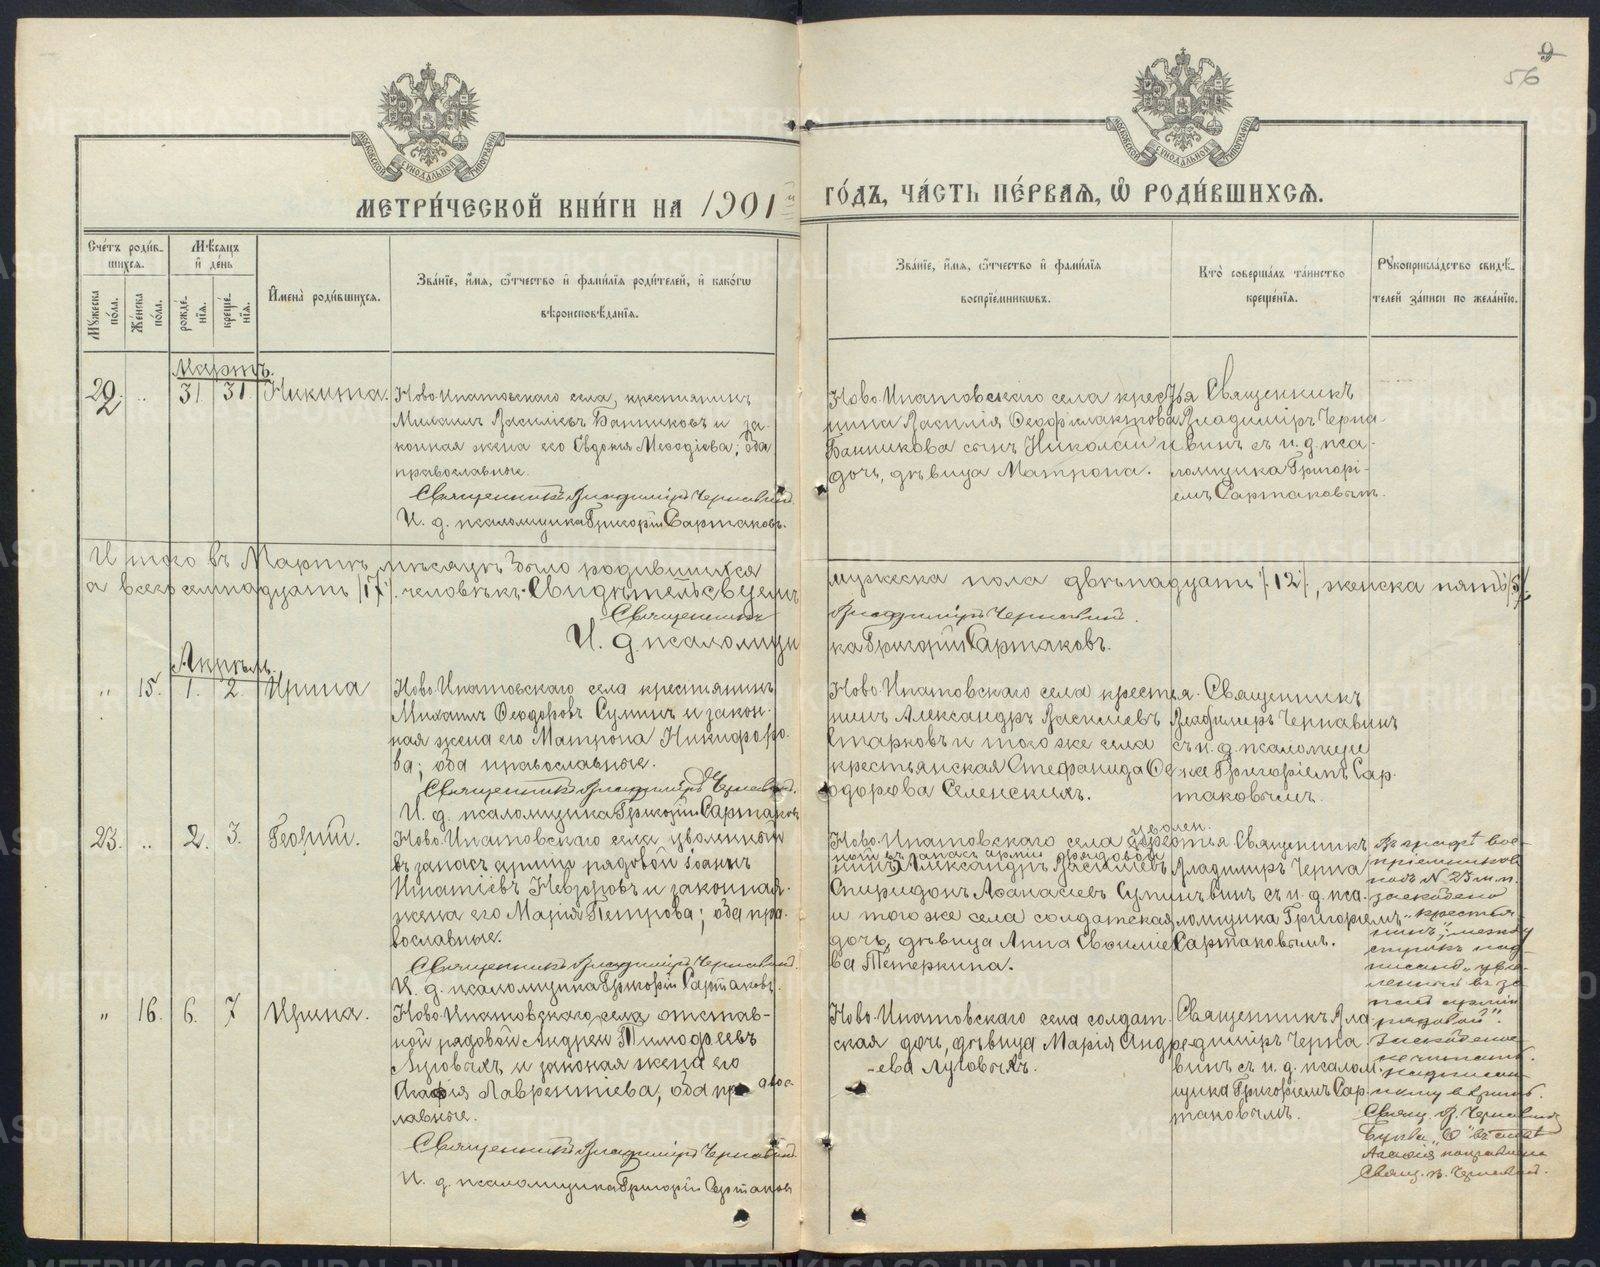 9
56
МОСКОВСКОЙ СѴНОДАЛЬНОЙ ТИПОГРАФІИ
МОСКОВСКОЙ СѴНОДАЛЬНОЙ ТИПОГРАФІИ
МЕТРИ́ЧЕСКОЙ КНИ́ГИ НА 1901й ГО́ДЪ, ЧА́СТЬ ПЕ́РВАѦ, Ѡ РОДИ́ВШИХСѦ.
Сче́тъ роди́в-
шихся.
Мѣ́сяцъ
и́ де́нь
Мꙋжеска по́ла.
Же́нска по́ла.
рожде́-
нїя.
креще́-
нїя.
И́мена̀ роди́вшихся.
Зва́нїе, и́мя, ѻ҆́тчество и҆ фами́лїя роди́телей, и҆ како́гѡ
вѣроисповѣ́данїя.
Зва́нїе, и́мя, ѻ҆́тчество и҆ фами́лїя
воспрїе́мникѡвъ.
Кто̀ соверша́лъ та́инство
креще́нїя.
Рꙋкоприкла́дство свидѣ́-
телей за́писи по жела́нїю.
Мартъ.
22. „ 31. 31. Никита.
Ново-Ипатовскаго села, крестьянинъ
Михаилъ Василіевъ Банниковъ и за-
конная жена его Евдокія Меѳодіева; оба
православные.
Священникъ Владиміръ Чернавинъ.
И. д. псаломщика Григорій Сартаковъ.
Ново-Ипатовскаго села крестья
нина Василія Ѳеофилактова
Банникова сынъ Николай и
дочь, дѣвица Матрона.
Священникъ
Владиміръ Черна-
винъ съ и. д. пса-
ломщика Григорі-
емъ Сартаковымъ.
Итого въ Мартѣ мѣсяцѣ было родившихся мужеска пола двѣнадцать /12/, женска пять /5/,
а всего семнадцать /17/. человѣкъ. Свидѣтельствуемъ
Священникъ Владиміръ Чернавинъ.
И. д. псаломщика Григорій Сартаковъ.
Апрѣль.
„ 15. 1. 2. Ирина
Ново-Ипатовскаго села крестьянинъ
Михаилъ Ѳеодоровъ Суминъ и закон-
ная жена его Матрона Никифоро-
ва; оба православные.
Священникъ Владиміръ Чернавинъ.
И. д. псаломщика Григорій Сартаковъ
Ново-Ипатовскаго села крестья-
нинъ Александръ Василіевъ
Старковъ и того же села
крестьянская Стефанида Ѳе
одорова Селенскихъ.
Священникъ
Владиміръ Чернавинъ
съ и. д. псаломщи
ка Григоріемъ Сар-
таковымъ.
23. „ 2. 3. Георгій.
Ново-Ипатовскаго села уволенный
въ запасъ арміи рядовой Іоаннъ
Игнатіевъ Невзоровъ и законная
жена его Марія Петрова; оба пра-
вославные.
Священникъ Владиміръ Чернавинъ.
И. д. псаломщика Григорій Сартаковъ.
уволен.
Ново-Ипатовскаго села крестья
ный въ запасъ арміи рядовой
нинъ Александръ Василіевъ
Спиридонъ Аѳанасіевъ Суминъ
и того же села солдатская
дочь, дѣвица Анна Евсиміе
ва Петеркина.
Священникъ
Владиміръ Черна
винъ съ и. д. пса-
ломщика Григоріемъ
Сартаковымъ.
Въ графѣ вос-
пріемниковъ
подъ N. 23 м. п.
зачеркнено
„крестья-
нинъ“, между
строкъ над-
писано „уво-
ленный въ за-
пасъ арміи
рядовой“.
Зачеркненное
не читать.
Священ. В. Чернавинъ
Буква „Ѳ“ въ словѣ
Агаѳія поправлена
Свящ. В. Чернавинъ.
„ 16. 6. 7 Ирина.
Ново-Ипатовскаго села отстав-
ной рядовой Андрей Тимофеевъ
Луговыхъ и законая жена его
Агаѳія Лаврентіева, оба пр авос-
лавные.
Священникъ Владиміръ Чернавинъ.
И. д. псаломщика Григорій Сартаковъ
Ново-Ипатовскаго села солдат-
ская дочь, дѣвица Марія Андре-
-ева Луговыхъ.
Священникъ Вла
диміръ Черна
винъ съ и. д. псалом
щика Григоріемъ Сар-
таковымъ.
METRIKI.GASO-URAL.RU